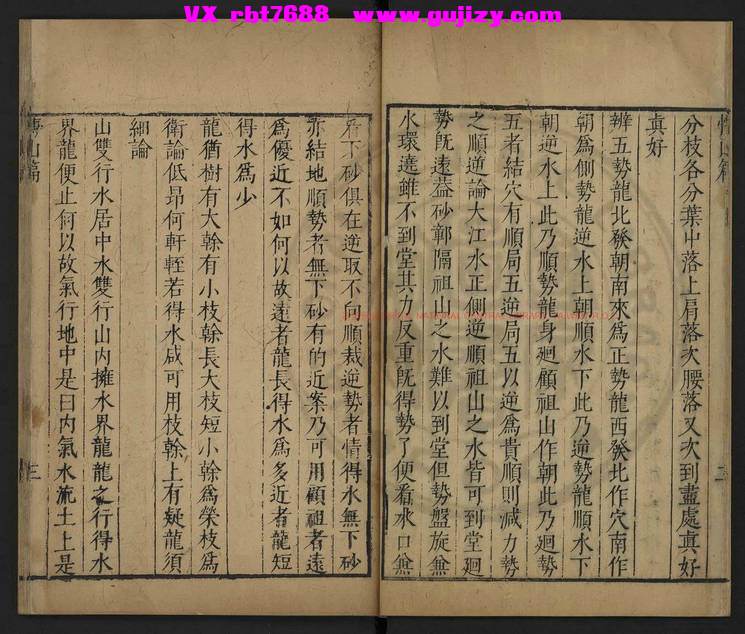 VX rbt7688 www.gujizy.com
分枝各分葉中落上肩落次腰落又次到盡處真好
真好
辨五勢龍北發朝南來爲正勢龍西發北作穴南作
朝爲側勢龍逆水上朝順水下此乃逆勢龍順水下
朝逆水上此乃順勢龍身廻顧祖山作朝此乃廻勢
五者結穴有順局五逆局五以逆爲貴順則減力勢
之順逆論大江水正側逆順祖山之水皆可到堂廻
勢旣遠益砂郭隔祖山之水難以到堂但勢盤旋無
水環遶雖不到堂其力反重旣得勢了便看水口無
二
看下砂俱在逆取不向順裁逆勢者情得水無下砂
亦結地順勢者無下砂有的近案乃可用顧祖者遠
爲優近不如何以故遠者龍長得水爲多近者龍短
得水爲少
龍猶樹有大榦有小枝榦長大枝短小榦爲榮枝爲
衛論低昻何軒輊若得水咸可用枝榦上有疑龍須
細論
山雙行水居中水雙行山内擁水界龍龍之行得水
界龍便止何以故氣行地中是曰内氣水流土上是
三